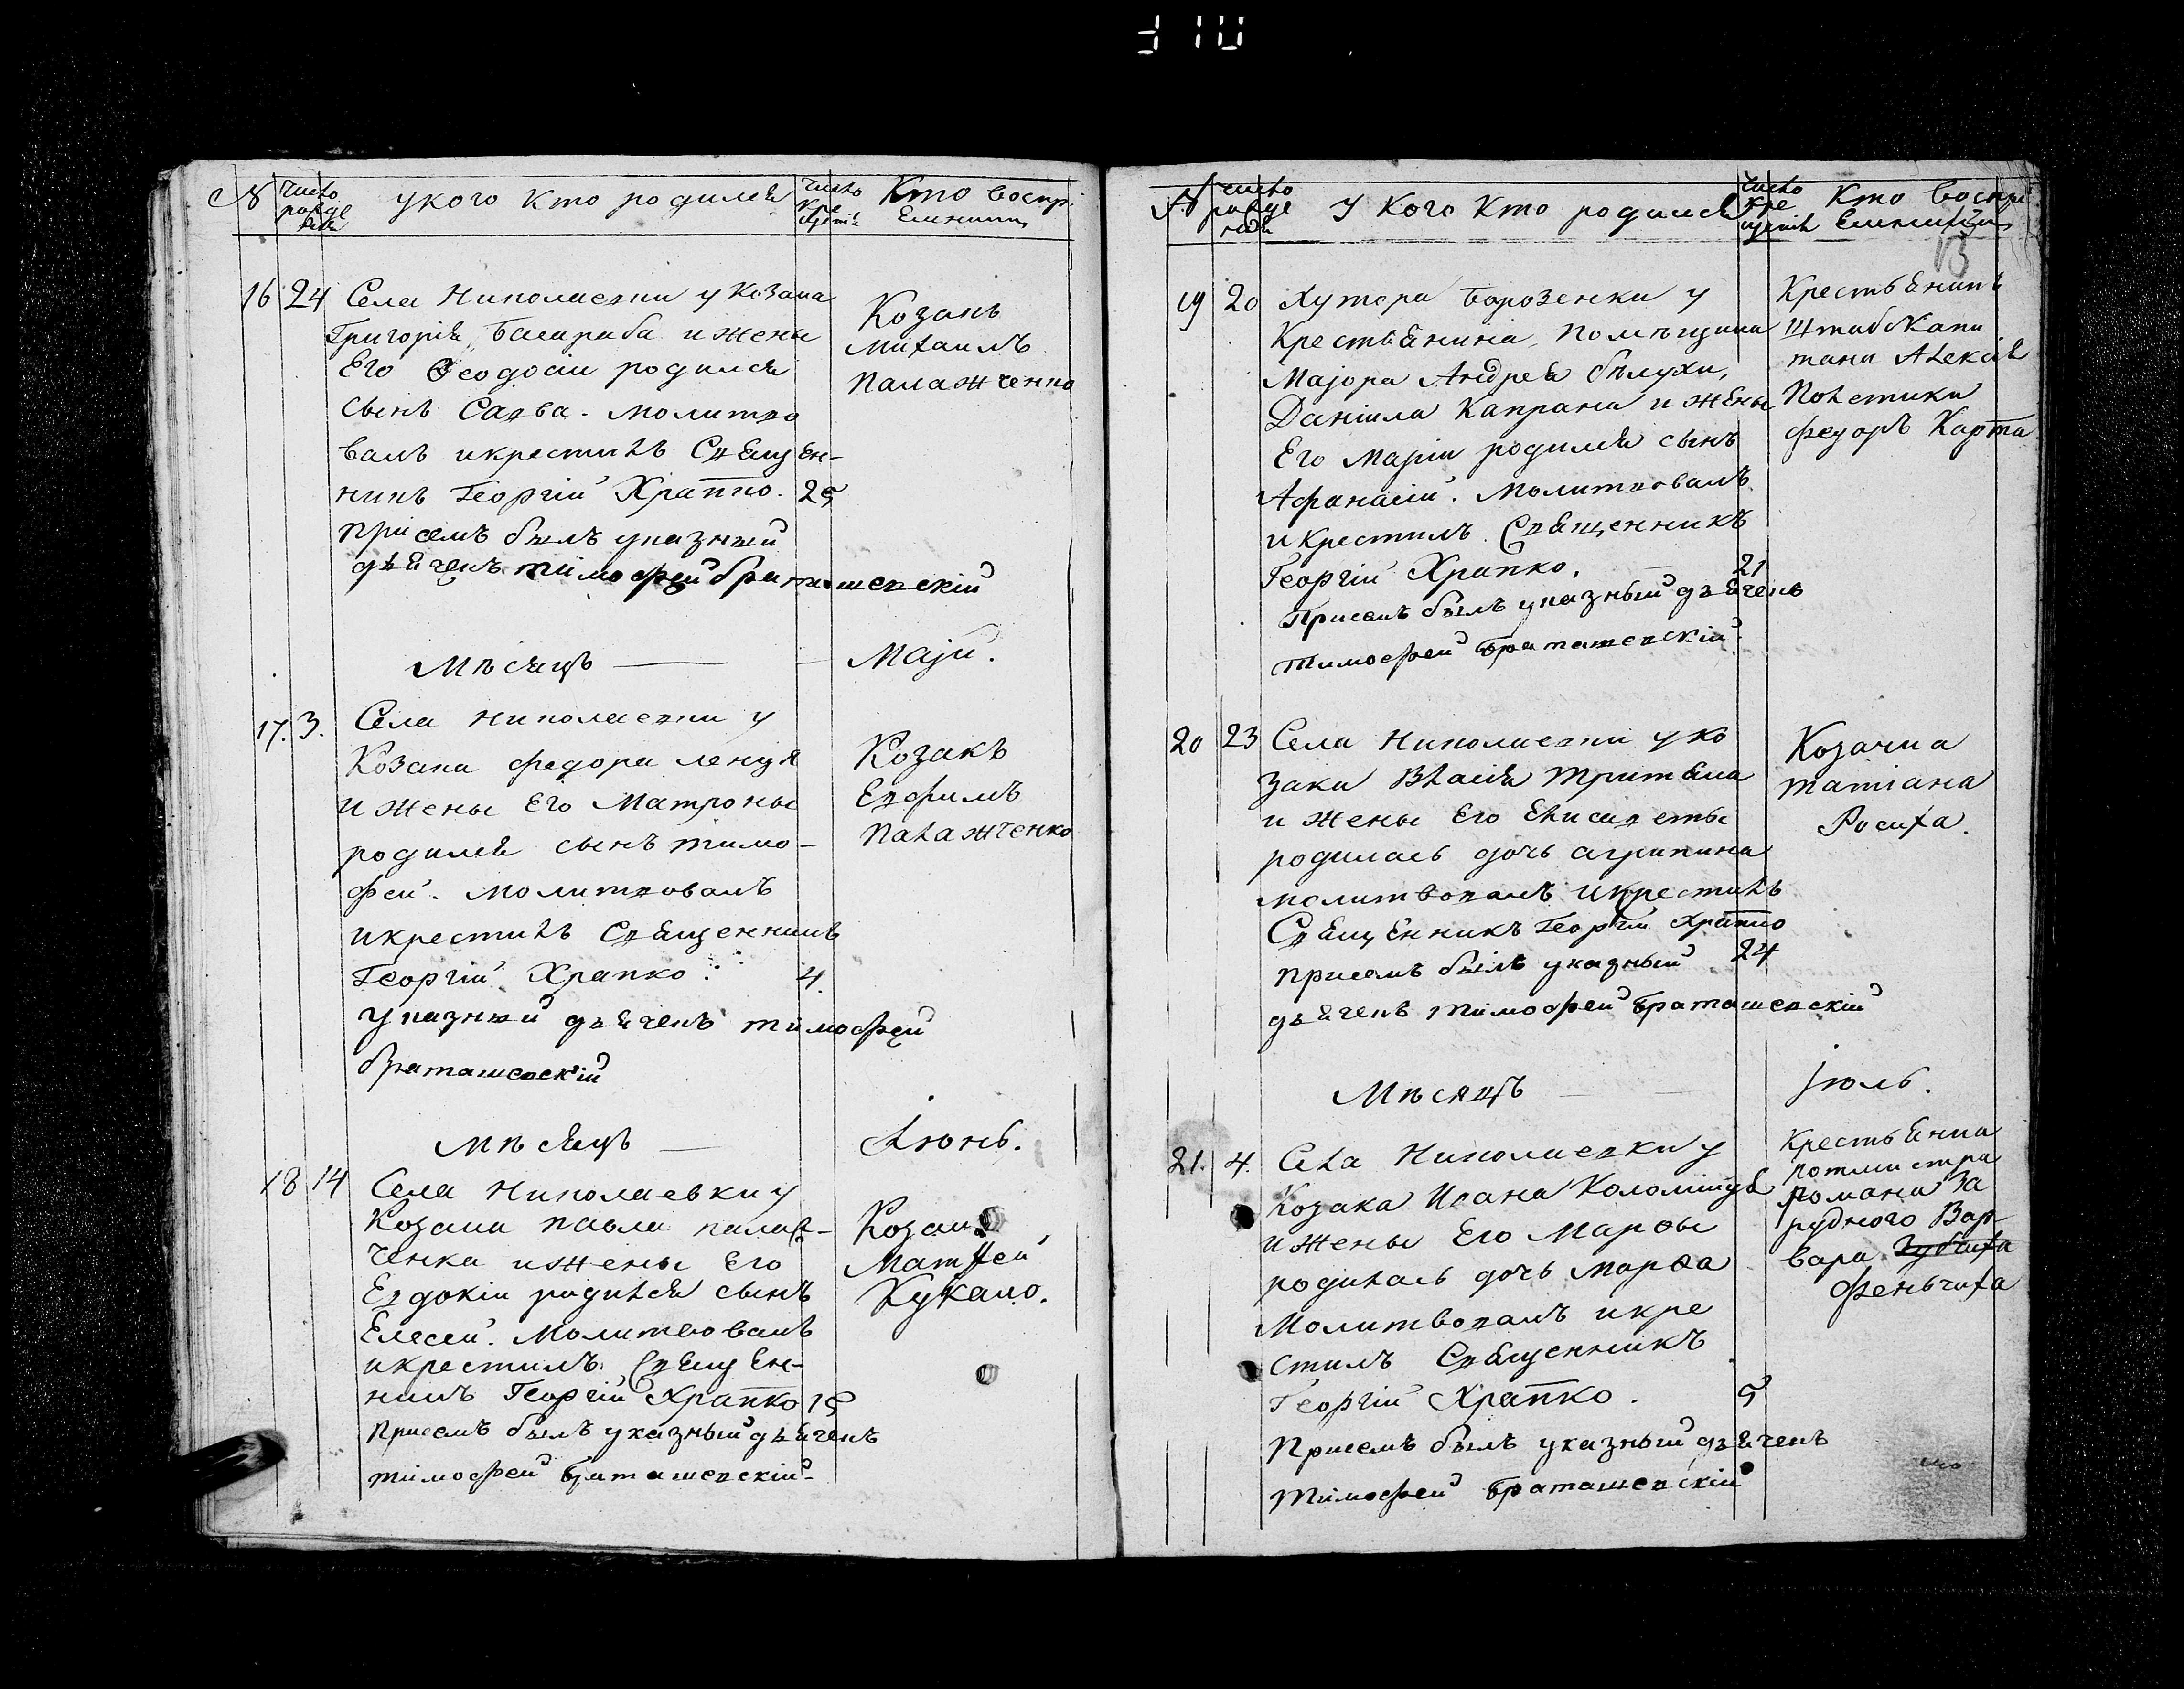 310
№ число рожде нія у кого кто родился число кре щенія Кто воспр. емникъ
16 24 Села Николаевки у Козака
Григорія Басараба и жены
Его Ѳеодосіи родился
сынъ Савва. Молитво
валъ и крестилъ Священ-
никъ Георгій Храпко. 25
при семъ былъ указный
дьячекъ Тимофей Браташевскій
Козакъ
Михаилъ
Палажченко
Мѣсяцъ Маій.
17. 3. Села Николаевки у
Козака Федора Ленця
и жены Его Матроны
родился сынъ Тимо-
фей. Молитвовалъ
и крестилъ Священникъ
Георгій Храпко. 4.
Указный дьячекъ Тимофей
Браташевскій
Козакъ
Евфимъ
Палажченко
Мѣсяцъ Іюнь.
18 14 Села Николаевки у
Козака Павла Палаж-
ченка и жены Его
Евдокіи родился сынъ
Елесей. Молитвовалъ
и крестилъ Священ-
никъ Георгій Храпко 15
При семъ былъ указный дьячекъ
Тимофей Браташевскій
Козакъ
Матѳей
Кукало.
№ число рожде нія у кого кто родился число кре щенія Кто воспрі емникъ
13
19 20 Хутора Борозенки у
Крестьянина Помѣщика
Маіора Андрея Бѣлухи,
Даніила Капрана и жены
Его Маріи родился сынъ
Афанасій. Молитвовалъ
и крестилъ Священникъ
Георгій Храпко. 21
При семъ былъ указный дьячекъ
Тимофей Браташевскій.
Крестьянинъ
Штабскапи
тана Алексія
Полетики
Федоръ Карта
20 23 Села Николаевки у ко
зака Власія Тритяка
и жены Его Елисаветы
родилась дочь Агрипина
молитвовалъ и крестилъ
Священникъ Георгій Храпко
24
При семъ былъ указный
дьячекъ Тимофей Браташевскій
Козачка
Татіана
Росиха.
Мѣсяцъ Іюль.
21. 4. Села Николаевки у
Козака Ивана Коломійця
и жены Его Марѳы
родилась дочь Марѳа
Молитвовалъ и кре
стилъ Священникъ
Георгій Храпко. 5
При семъ былъ указный дьячекъ
Тимофей Браташевскій
Крестьянка
ротмистра
Романа За
руднего Вар-
вара
Феньчиха